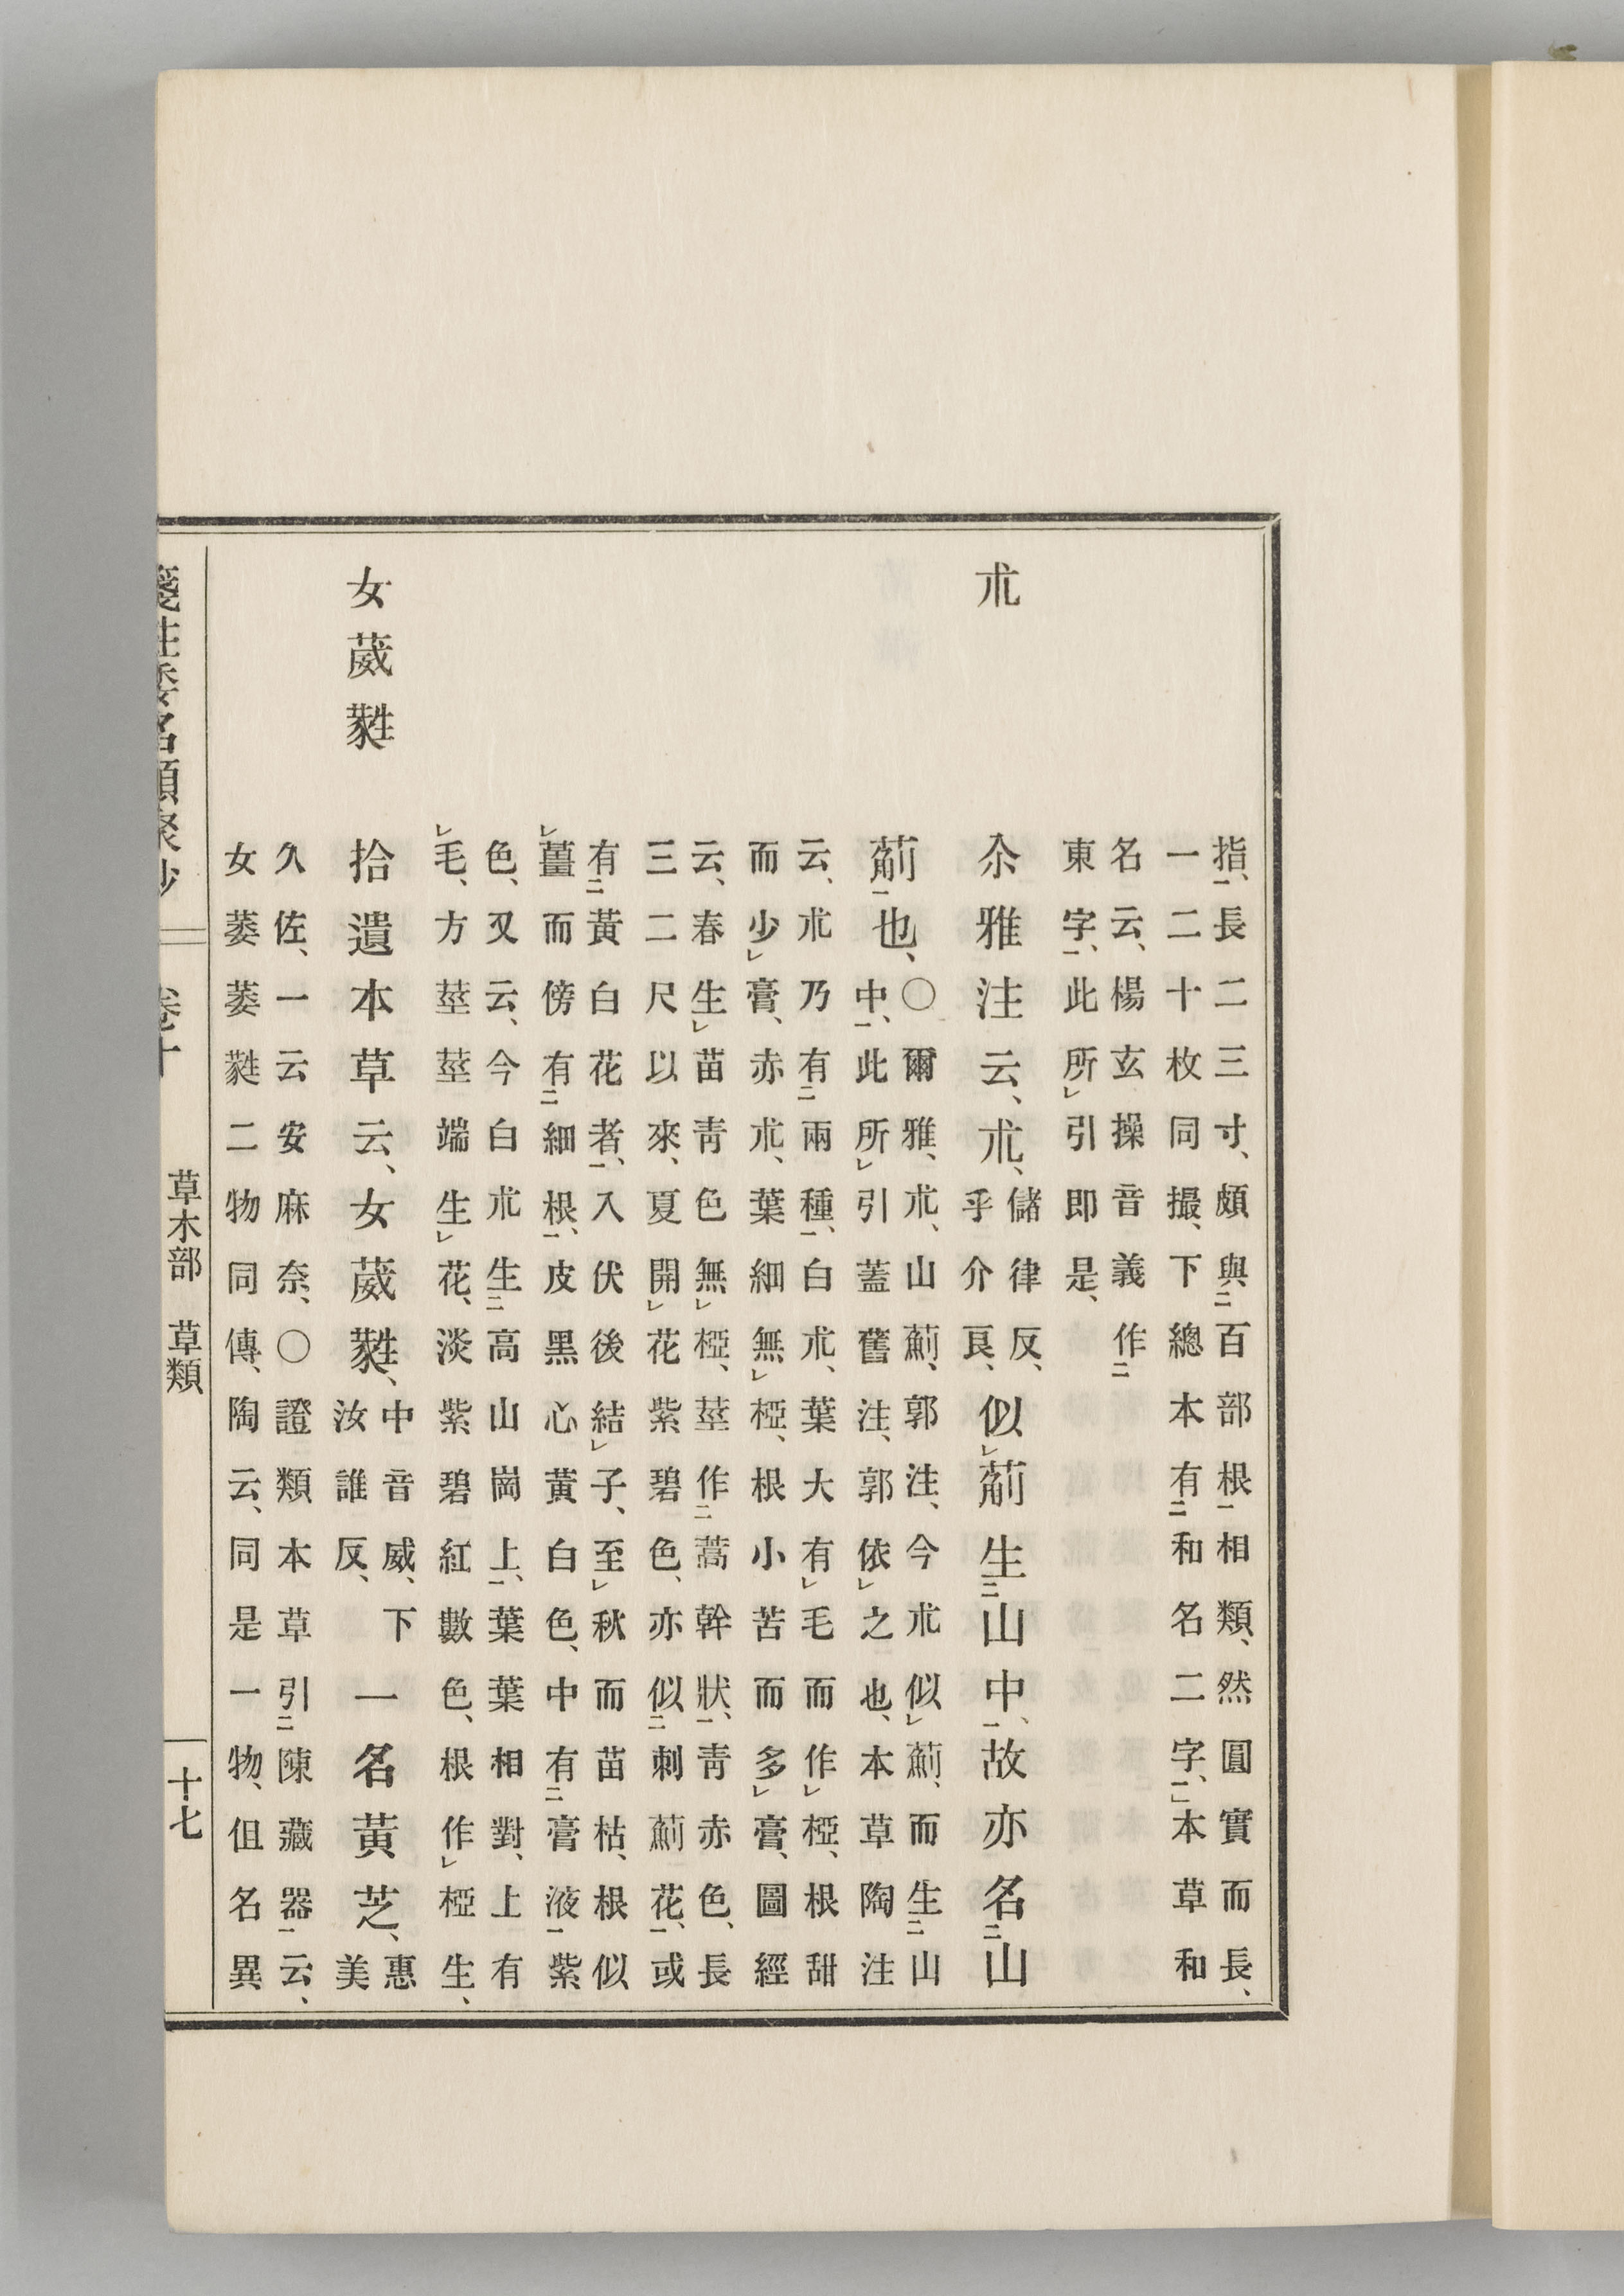 指、長二三寸、頗與百部根相類、然圓實而長、
一二十枚同撮、下總本有和名二字、本草和
名云、楊玄操音義作
東字、此所引即是、
朮
尒雅注云、朮、儲律反、乎介良、似薊生山中、故亦名山
薊也、
○爾雅、朮、山薊、郭注、今朮似薊、而生山
中、此所引蓋舊注、郭依之也、本草陶注
云、朮乃有兩種、白朮、葉大有毛而作椏、根甜
而少膏、赤朮、葉細無椏、根小苦而多膏、圖經
云、春生苗青色無椏、莖作蒿幹狀、青赤色、長
三二尺以來、夏開花紫碧色、亦似刺薊花、或
有黃白花者、入伏後結子、至秋而苗枯、根似
薑而傍有細根、皮黑心黃白色、中有膏液紫
色、又云、今白朮生高山崗上、葉葉相對、上有
毛、方莖莖端生花、淡紫碧紅數色、根作椏生、
女葳蕤
拾遺本草云、女葳蕤、中音威、下汝誰反、一名黃芝、惠美
久佐、一云安麻奈、○證類本草引陳藏器云、
女萎萎蕤二物同傳、陶云、同是一物、但名異
箋注倭名類聚抄 卷十 草木部 草類 十七